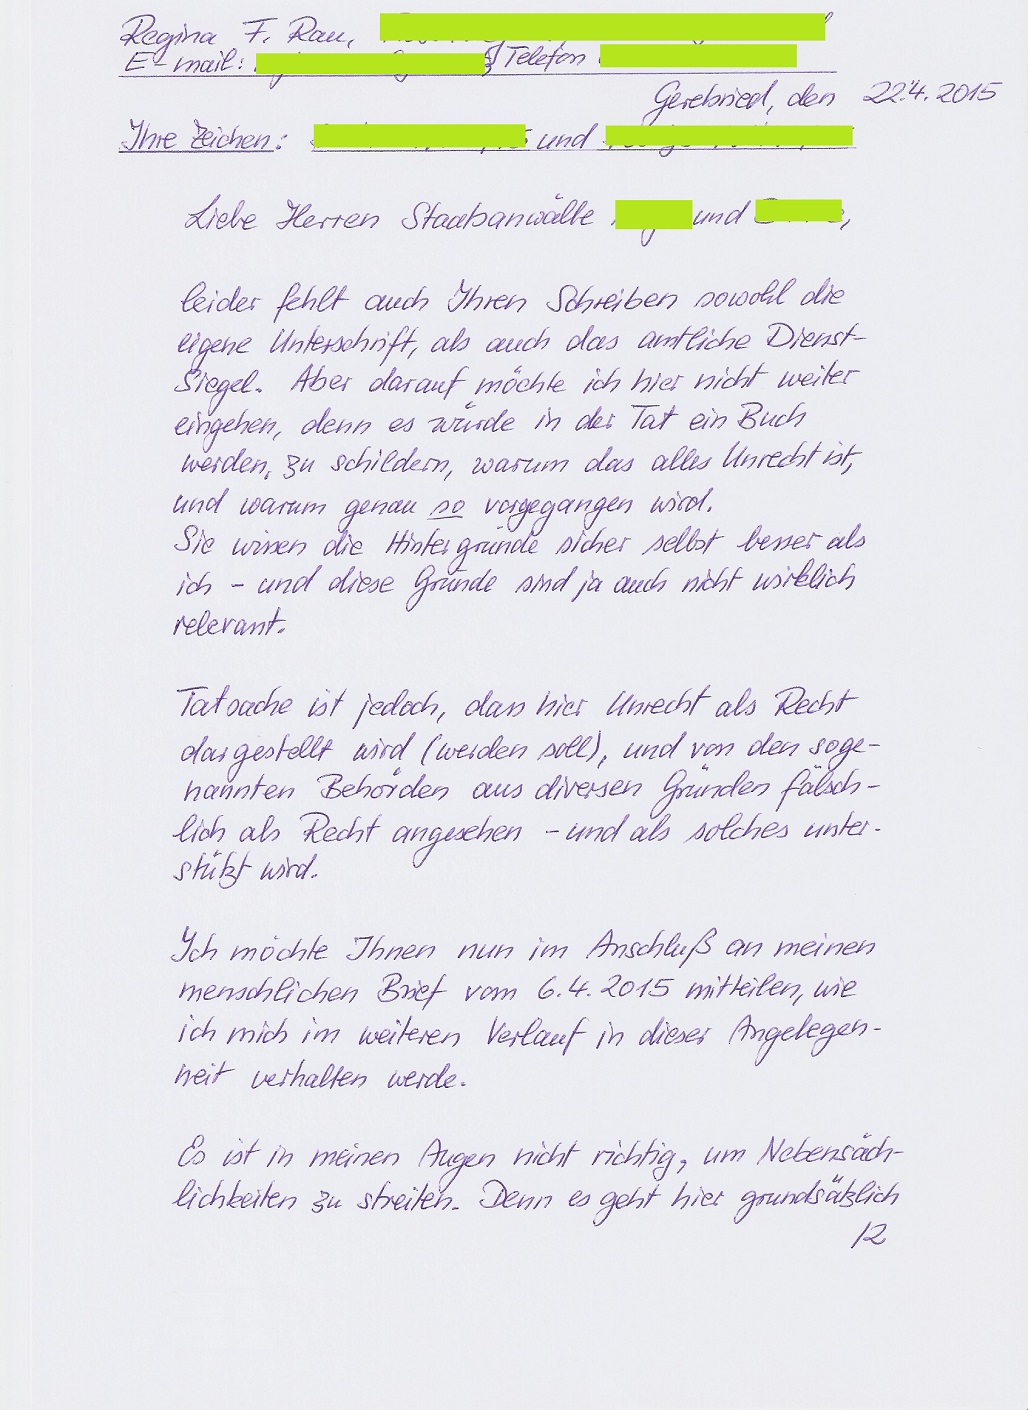 Regina F. Rau,
E-mail: Telefon
Geretsried, den 22.4.2015
Ihre Zeichen: und
Liebe Herren Staatsanwälte und ,
leider fehlt auch Ihren Schreiben sowohl die
eigene Unterschrift, als auch das amtliche Dienst-
Siegel. Aber darauf möchte ich hier nicht weiter
eingehen, denn es würde in der Tat ein Buch
werden, zu schildern, warum das alles Unrecht ist,
und warum genau so vorgegangen wird.
Sie wissen die Hintergründe sicher selbst besser als
ich - und diese Gründe sind ja auch nicht wirklich
relevant.
Tatsache ist jedoch, dass hier Unrecht als Recht
dargestellt wird (werden soll), und von den soge-
nannten Behörden aus diversen Gründen fälsch-
lich als Recht angesehen - und als solches unter-
stützt wird.
Ich möchte Ihnen nun im Anschluß an meinen
menschlichen Brief vom 6.4.2015 mitteilen, wie
ich mich im weiteren Verlauf in dieser Angelegen-
heit verhalten werde.
Es ist in meinen Augen nicht richtig, um Nebensäch-
lichkeiten zu streiten. Denn es geht hier grundsätzlich
/2